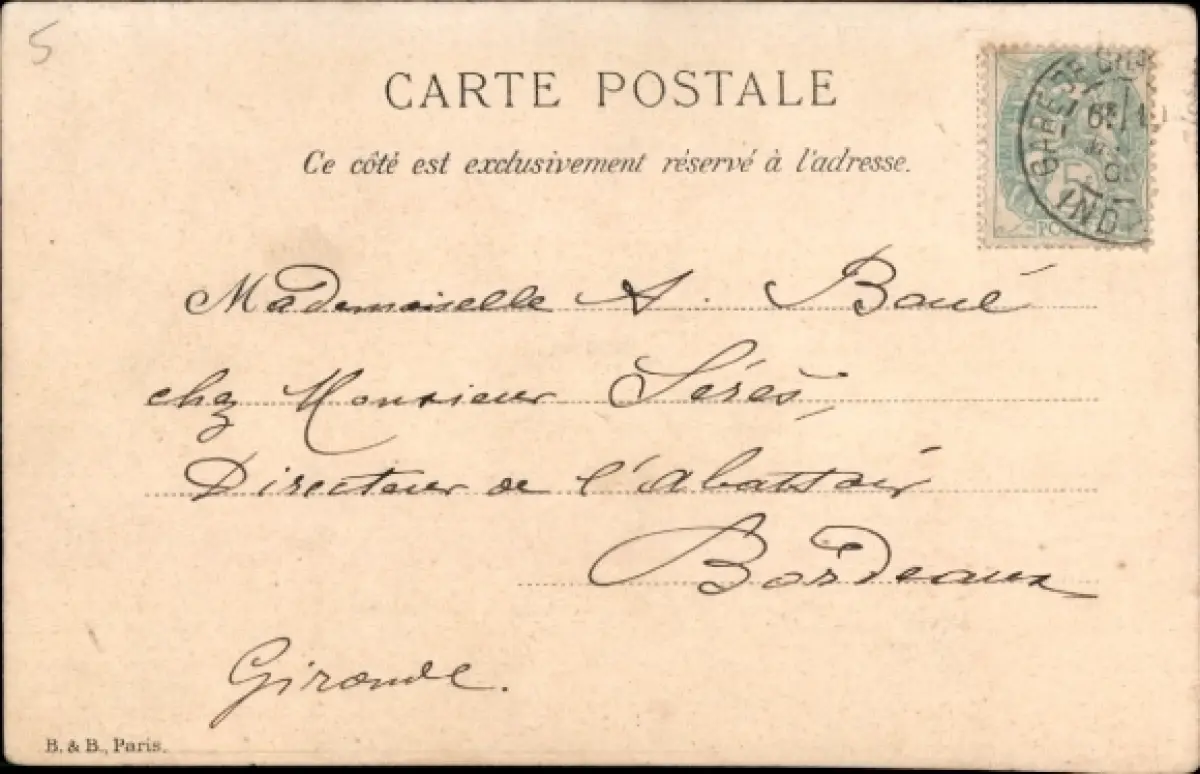 5
CARTE POSTALE
Ce côté est exclusivement réservé à l'adresse.
GARE DE
IND
5
Mademoiselle A. Boué
chez Monsieur Sérès,
Directeur de l'Abattoir
Bordeaux
Gironde.
B. & B., Paris.